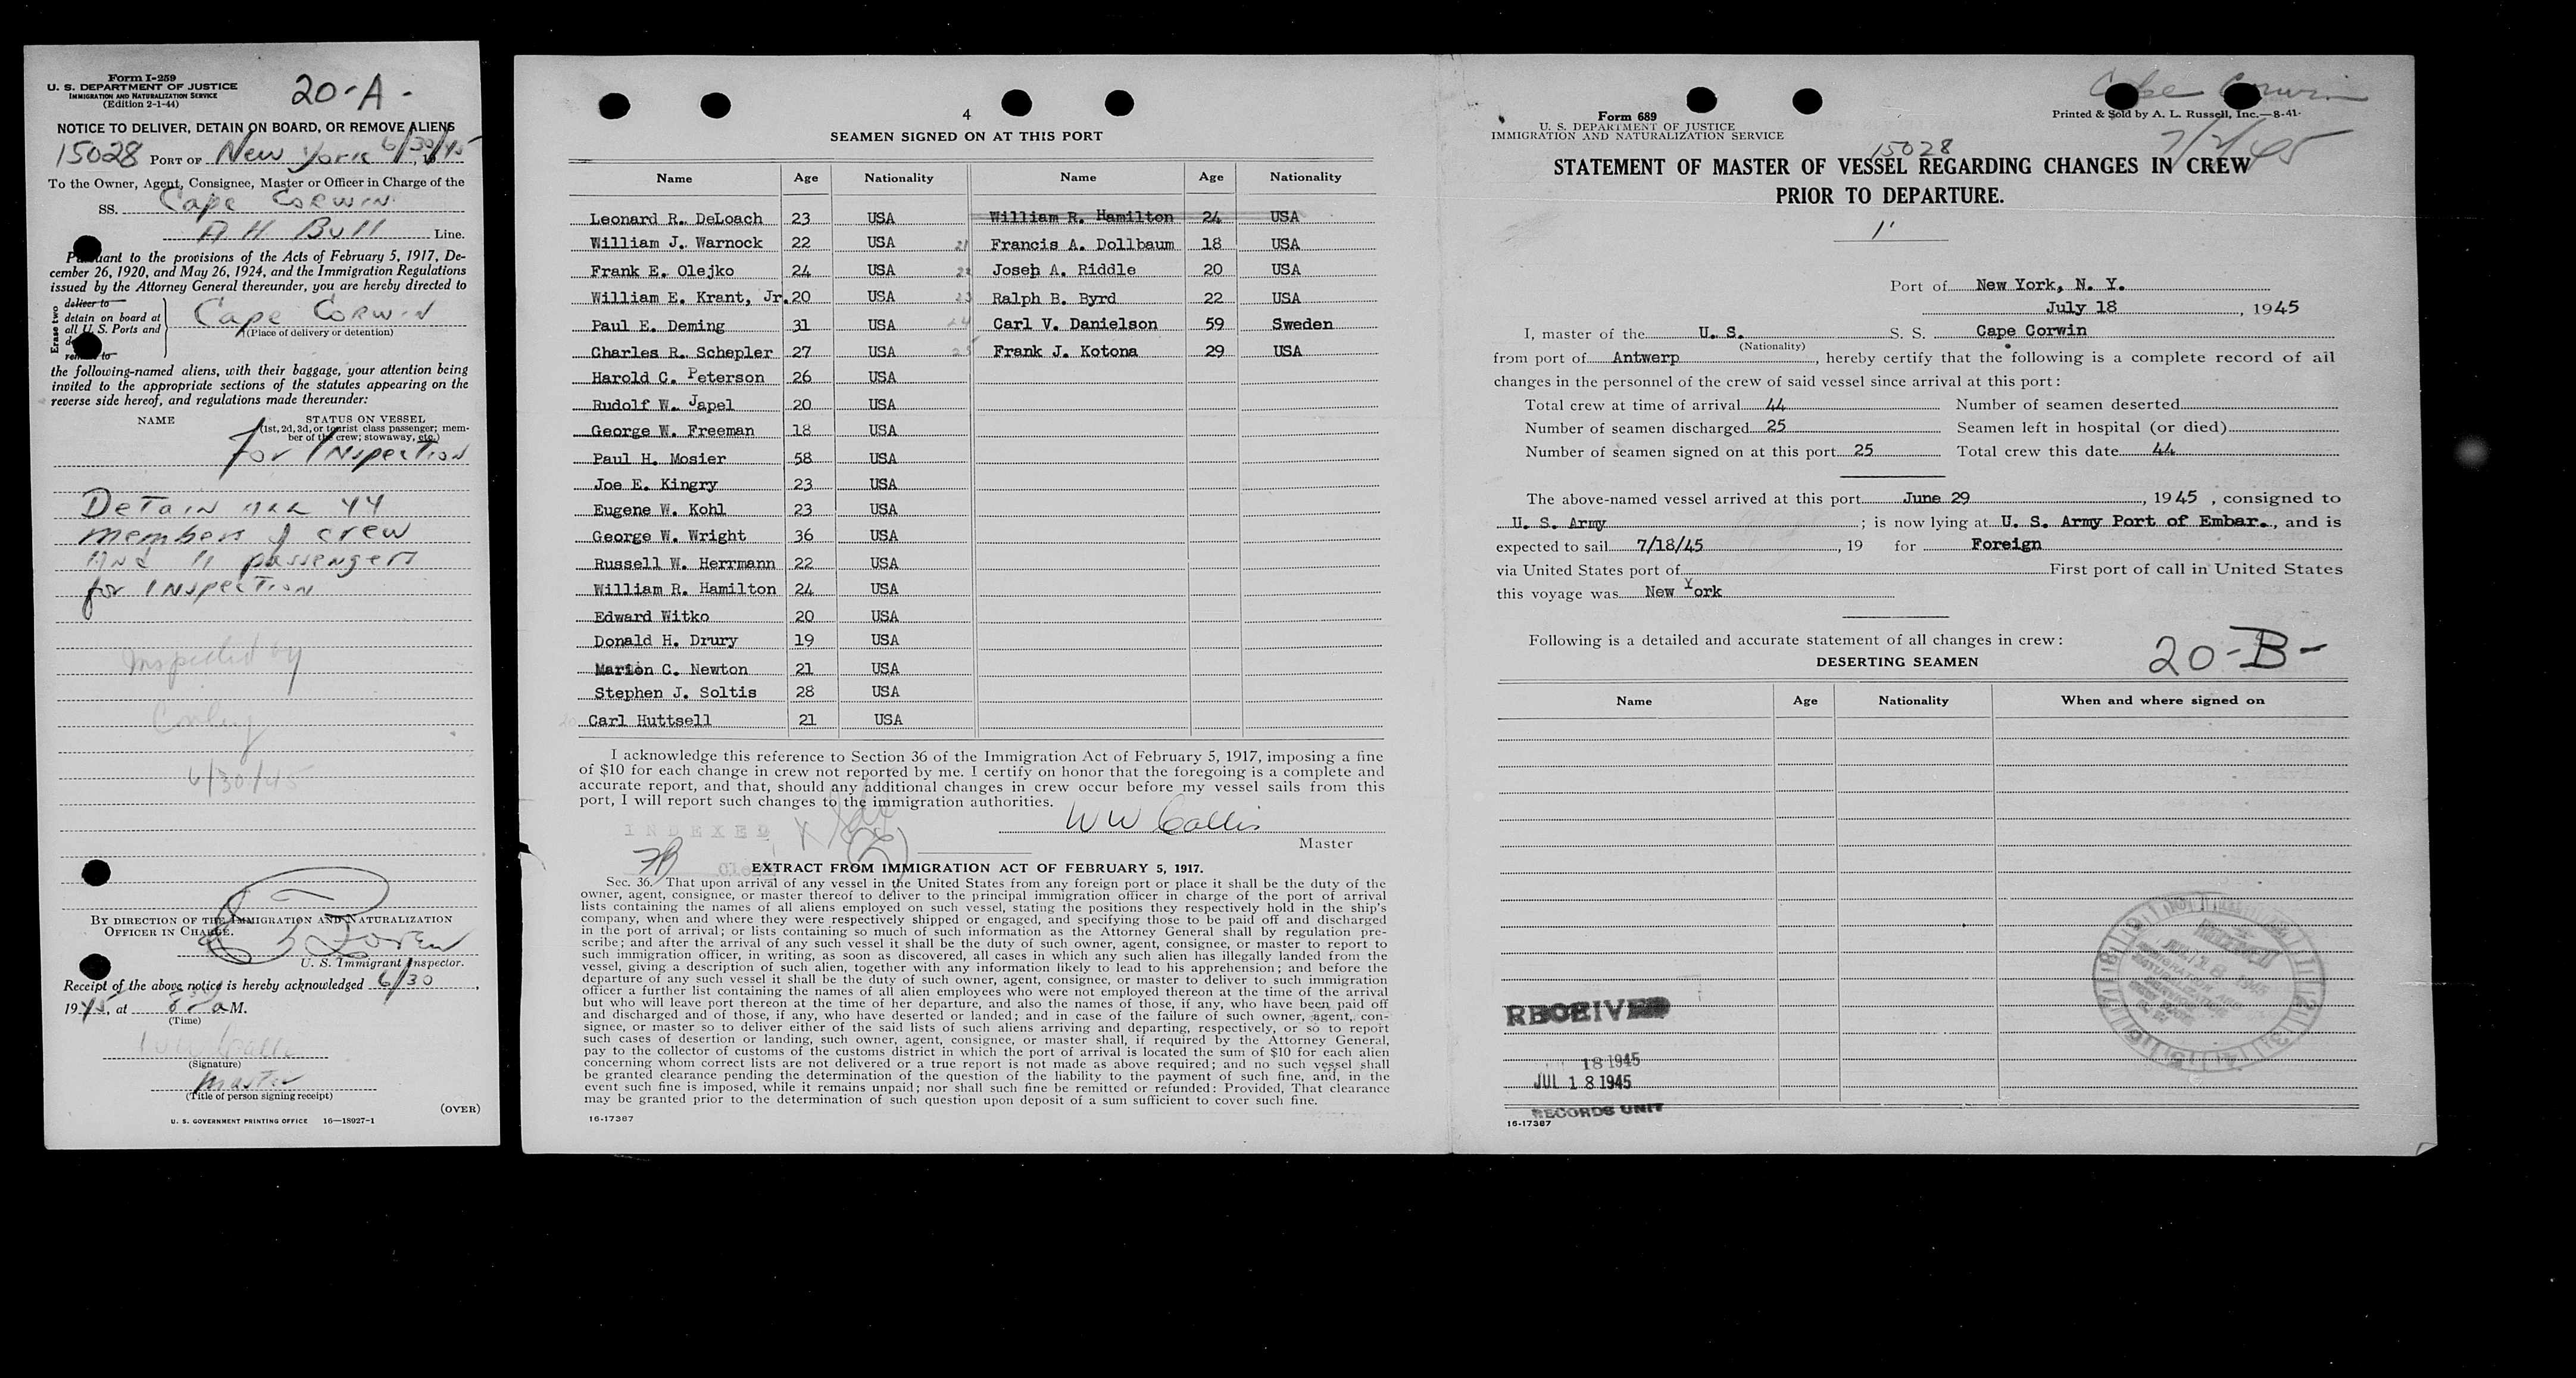 Form I-259
U. S. DEPARTMENT OF JUSTICE
IMMIGRATION AND NATURALIZATION SERVICE
(Edition 2-1-44)
20-A-
NOTICE TO DELIVER, DETAIN ON BOARD, OR REMOVE ALIENS
15028 PORT OF New York 6/30/45
To the Owner, Agent, Consignee, Master or Officer in Charge of the
SS. Cape Corwin
A H Bull Line.
Pursuant to the provisions of the Acts of February 5, 1917, De-
cember 26, 1920, and May 26, 1924, and the Immigration Regulations
issued by the Attorney General thereunder, you are hereby directed to
Erase two
deliver to
detain on board at
all U. S. Ports and
remove to
Cape Corwin
(Place of delivery or detention)
the following-named aliens, with their baggage, your attention being
invited to the appropriate sections of the statutes appearing on the
reverse side hereof, and regulations made thereunder:
NAME STATUS ON VESSEL
(1st, 2d, 3d, or tourist class passenger; mem-
ber of the crew; stowaway, etc.)
for Inspection
Detain all 44
members of crew
And 11 passengers
for Inspection
Inspected by
6/30/45
BY DIRECTION OF THE IMMIGRATION AND NATURALIZATION
OFFICER IN CHARGE.
U. S. Immigrant Inspector.
Receipt of the above notice is hereby acknowledged 6/30,
1945, at 8 a M.
(Time)
(Signature)
Master
(Title of person signing receipt)
(OVER)
U. S. GOVERNMENT PRINTING OFFICE 16—18927-1
4
SEAMEN SIGNED ON AT THIS PORT
Name Age Nationality Name Age Nationality
Leonard R. DeLoach 23 USA William R. Hamilton 24 USA
William J. Warnock 22 USA 21 Francis A. Dollbaum 18 USA
Frank E. Olejko 24 USA 22 Joseph A. Riddle 20 USA
William E. Krant, Jr. 20 USA 23 Ralph B. Byrd 22 USA
Paul E. Deming 31 USA 24 Carl V. Danielson 59 Sweden
Charles R. Schepler 27 USA 25 Frank J. Kotona 29 USA
Harold C. Peterson 26 USA
Rudolf W. Japel 20 USA
George W. Freeman 18 USA
Paul H. Mosier 58 USA
Joe E. Kingry 23 USA
Eugene W. Kohl 23 USA
George W. Wright 36 USA
Russell W. Herrmann 22 USA
William R. Hamilton 24 USA
Edward Witko 20 USA
Donald H. Drury 19 USA
Marion C. Newton 21 USA
Stephen J. Soltis 28 USA
20 Carl Huttsell 21 USA
I acknowledge this reference to Section 36 of the Immigration Act of February 5, 1917, imposing a fine
of $10 for each change in crew not reported by me. I certify on honor that the foregoing is a complete and
accurate report, and that, should any additional changes in crew occur before my vessel sails from this
port, I will report such changes to the immigration authorities.
INDEXED
W W Callis
Master
EXTRACT FROM IMMIGRATION ACT OF FEBRUARY 5, 1917.
Sec. 36. That upon arrival of any vessel in the United States from any foreign port or place it shall be the duty of the
owner, agent, consignee, or master thereof to deliver to the principal immigration officer in charge of the port of arrival
lists containing the names of all aliens employed on such vessel, stating the positions they respectively hold in the ship's
company, when and where they were respectively shipped or engaged, and specifying those to be paid off and discharged
in the port of arrival; or lists containing so much of such information as the Attorney General shall by regulation pre-
scribe; and after the arrival of any such vessel it shall be the duty of such owner, agent, consignee, or master to report to
such immigration officer, in writing, as soon as discovered, all cases in which any such alien has illegally landed from the
vessel, giving a description of such alien, together with any information likely to lead to his apprehension; and before the
departure of any such vessel it shall be the duty of such owner, agent, consignee, or master to deliver to such immigration
officer a further list containing the names of all alien employees who were not employed thereon at the time of the arrival
but who will leave port thereon at the time of her departure, and also the names of those, if any, who have been paid off
and discharged and of those, if any, who have deserted or landed; and in case of the failure of such owner, agent, con-
signee, or master so to deliver either of the said lists of such aliens arriving and departing, respectively, or so to report
such cases of desertion or landing, such owner, agent, consignee, or master shall, if required by the Attorney General,
pay to the collector of customs of the customs district in which the port of arrival is located the sum of $10 for each alien
concerning whom correct lists are not delivered or a true report is not made as above required; and no such vessel shall
be granted clearance pending the determination of the question of the liability to the payment of such fine, and, in the
event such fine is imposed, while it remains unpaid; nor shall such fine be remitted or refunded: Provided, That clearance
may be granted prior to the determination of such question upon deposit of a sum sufficient to cover such fine.
16-17387
Cape Corwin
Form 689
U. S. DEPARTMENT OF JUSTICE
IMMIGRATION AND NATURALIZATION SERVICE
Printed & Sold by A. L. Russell, Inc.—8-41.
15028
STATEMENT OF MASTER OF VESSEL REGARDING CHANGES IN CREW
PRIOR TO DEPARTURE.
Port of New York, N. Y.
July 18, 1945
I, master of the U. S. S. S. Cape Corwin
(Nationality)
from port of Antwerp, hereby certify that the following is a complete record of all
changes in the personnel of the crew of said vessel since arrival at this port:
Total crew at time of arrival 44 Number of seamen deserted
Number of seamen discharged 25 Seamen left in hospital (or died)
Number of seamen signed on at this port 25 Total crew this date 44
The above-named vessel arrived at this port June 29, 1945, consigned to
U. S. Army; is now lying at U. S. Army Port of Embar., and is
expected to sail 7/18/45, 19 for Foreign
via United States port of First port of call in United States
this voyage was New York
Following is a detailed and accurate statement of all changes in crew:
20-B-
DESERTING SEAMEN
Name Age Nationality When and where signed on
RECEIVED
18 1945
JUL 18 1945
RECORDS UNIT
16-17387